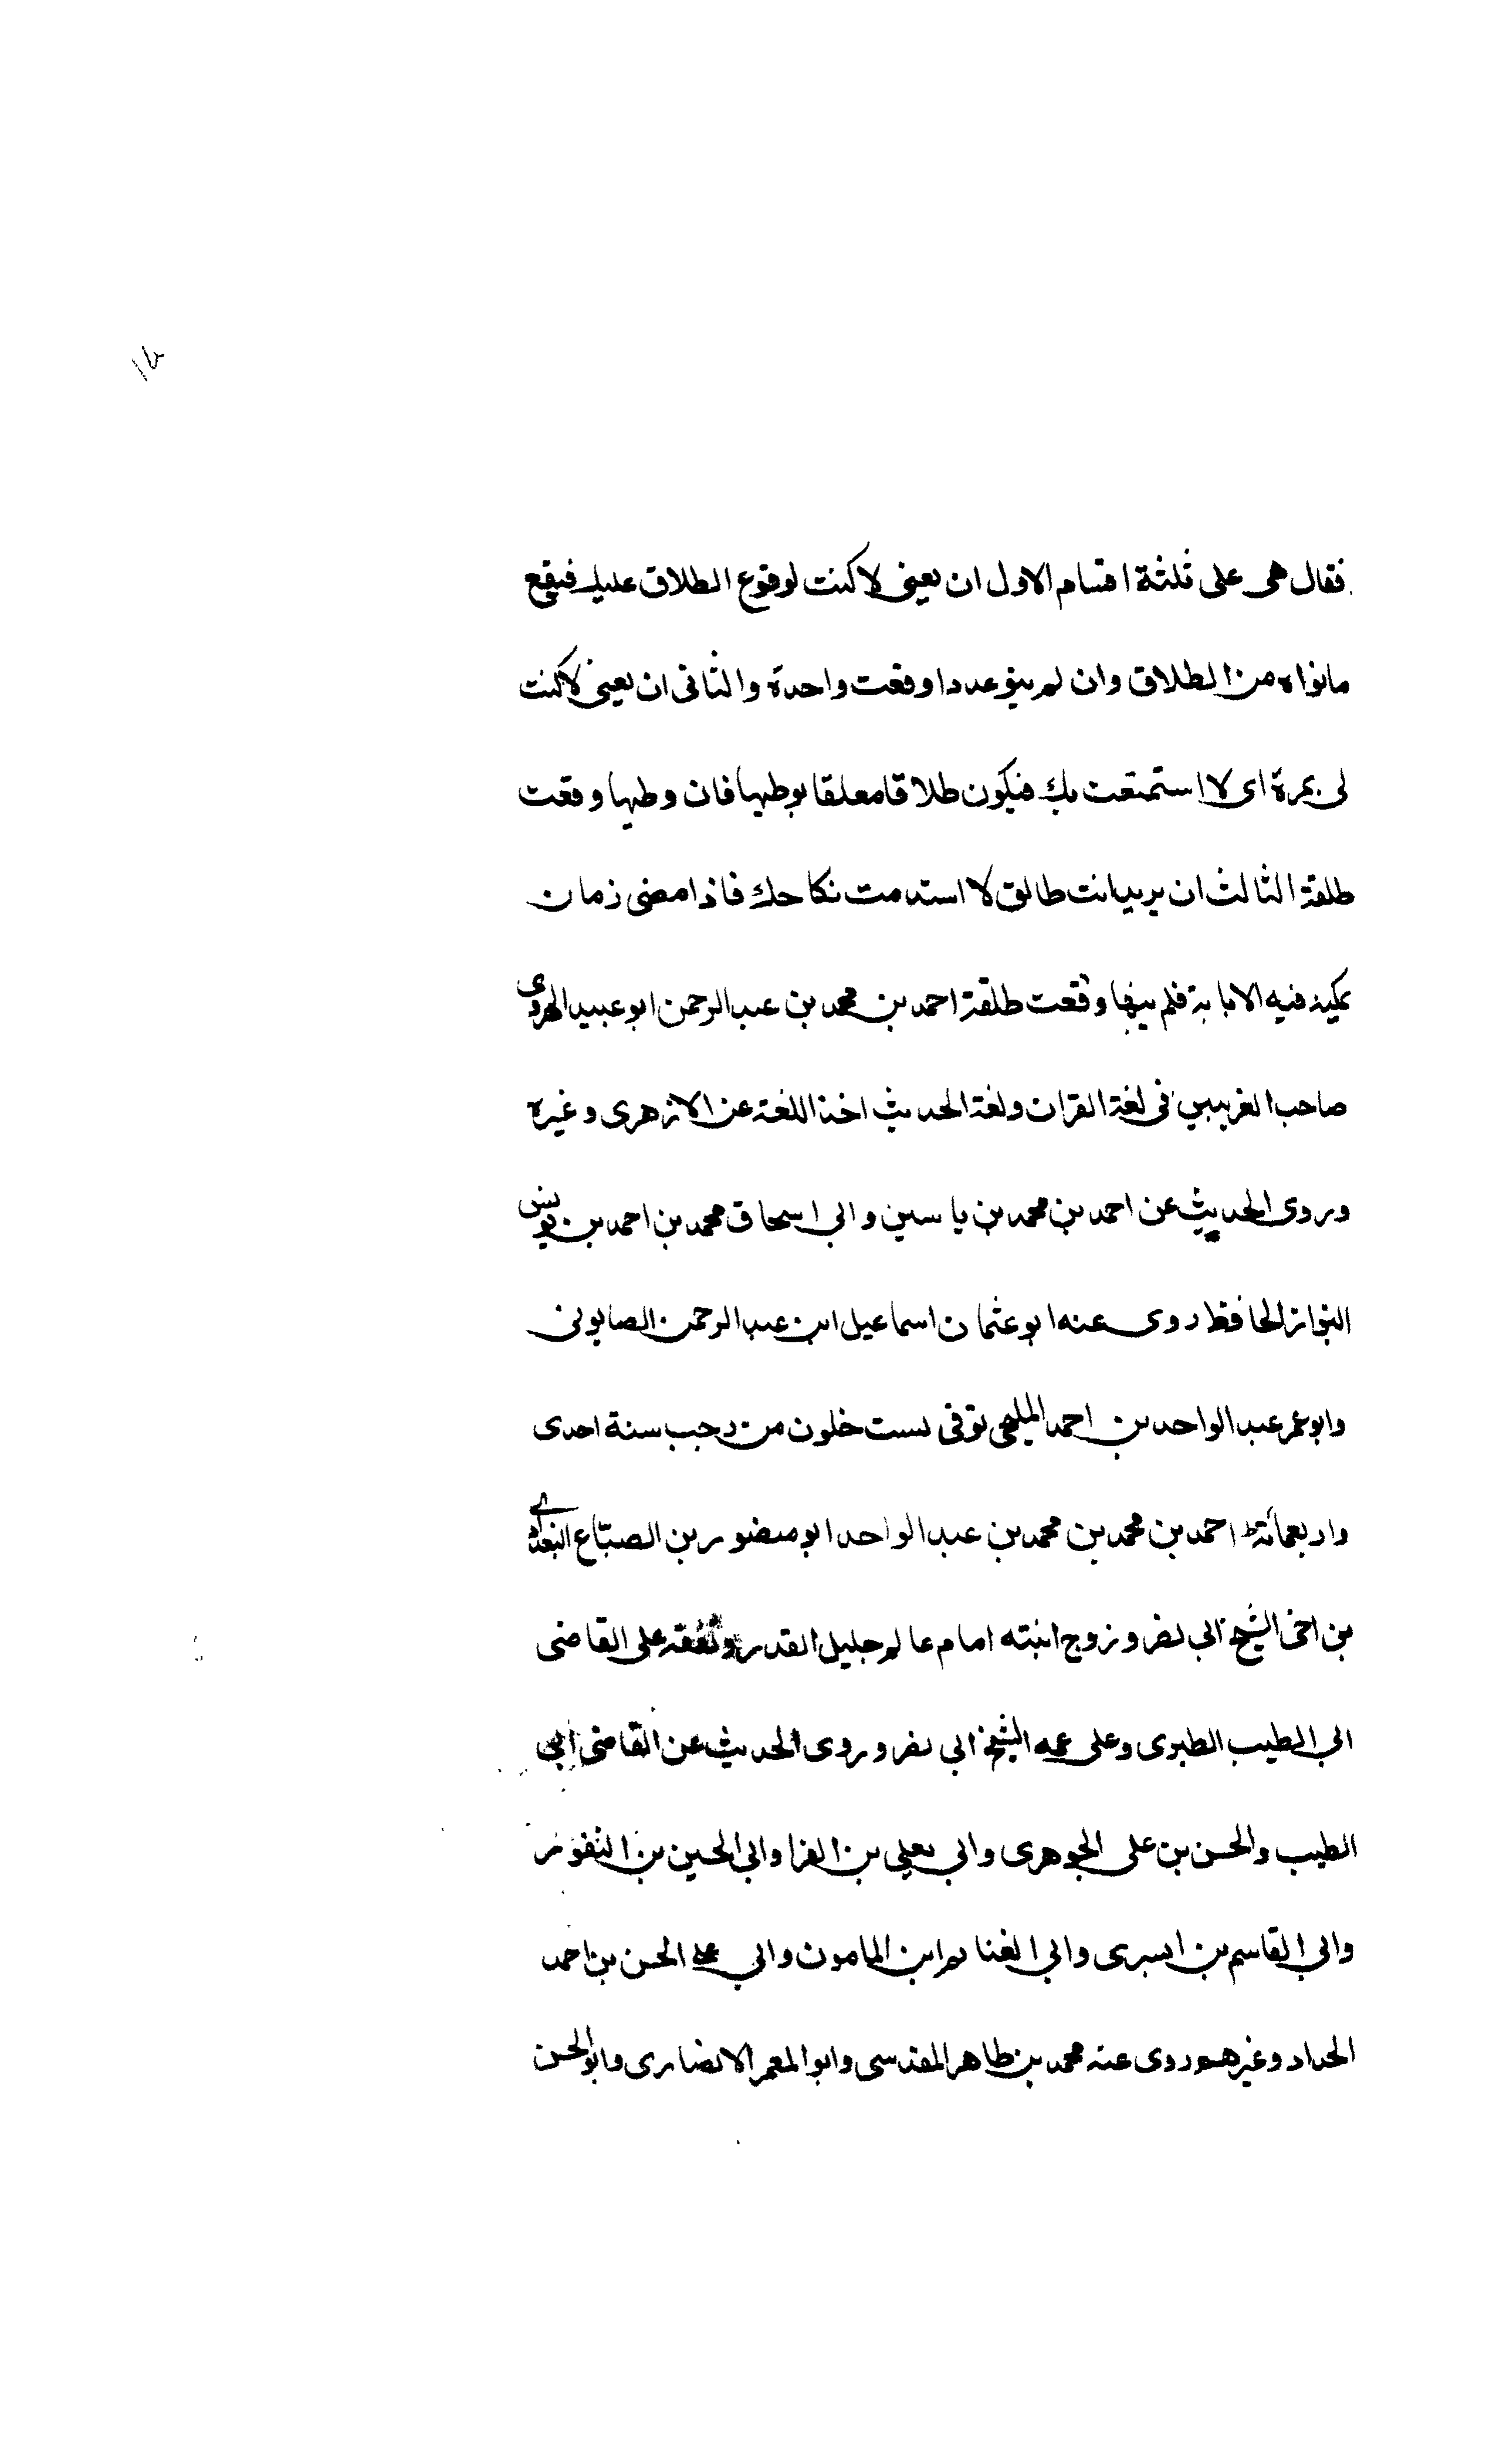 فقال هى على ثلثة اقسام الاول ان يعنى لاكنت لوقوع الطلاق عليك فيقع
مانواه من الطلاق وان لم ينو عددا وقعت واحدة والثانى ان يعنى لاكنت
لى بمرة اى لا استمتعت بك فيكون طلاقا معلقا بوطيها فان وطيها وقعت
طلقة الثالث ان يريد انت طالق لا استدمت نكاحك فاذا مضى زمان
يمكنه فيه الابانة فلم يبنها وقعت طلقة احمد بن محمد بن عبد الرحمن ابو عبيد الهروى
صاحب الغريبين فى لغة القران ولغة الحديث اخذ اللغة عن الازهرى وغيره
وروى الحديث عن احمد بن محمد بن ياسين وابى اسحاق محمد بن احمد بن يونس
البزاز الحافظ روى عنه ابو عثمان اسماعيل ابن عبد الرحمن الصابونى
وابو عمر عبد الواحد بن احمد المليحى توفى لست خلون من رجب سنة احدى
واربعمائة احمد بن محمد بن محمد بن عبد الواحد ابو منصور بن الصباغ البغدادى
بن اخى الشيخ ابى نصر وزوج ابنته امام عالم جليل القدر وتفقه على القاضى
ابى الطيب الطبرى وعلى عمه الشيخ ابى نصر وروى الحديث عن القاضى ابى
الطيب والحسن بن على الجوهرى وابى يعلى بن الفرا وابى الحسين بن النقور
وابى القاسم بن البسرى وابى الغنائم ابن المامون وابى على الحسن بن احمد
الحداد وغيرهم وروى عنه محمد بن طاهر المقدسى وابو المعمر الانصارى وابو الحسن